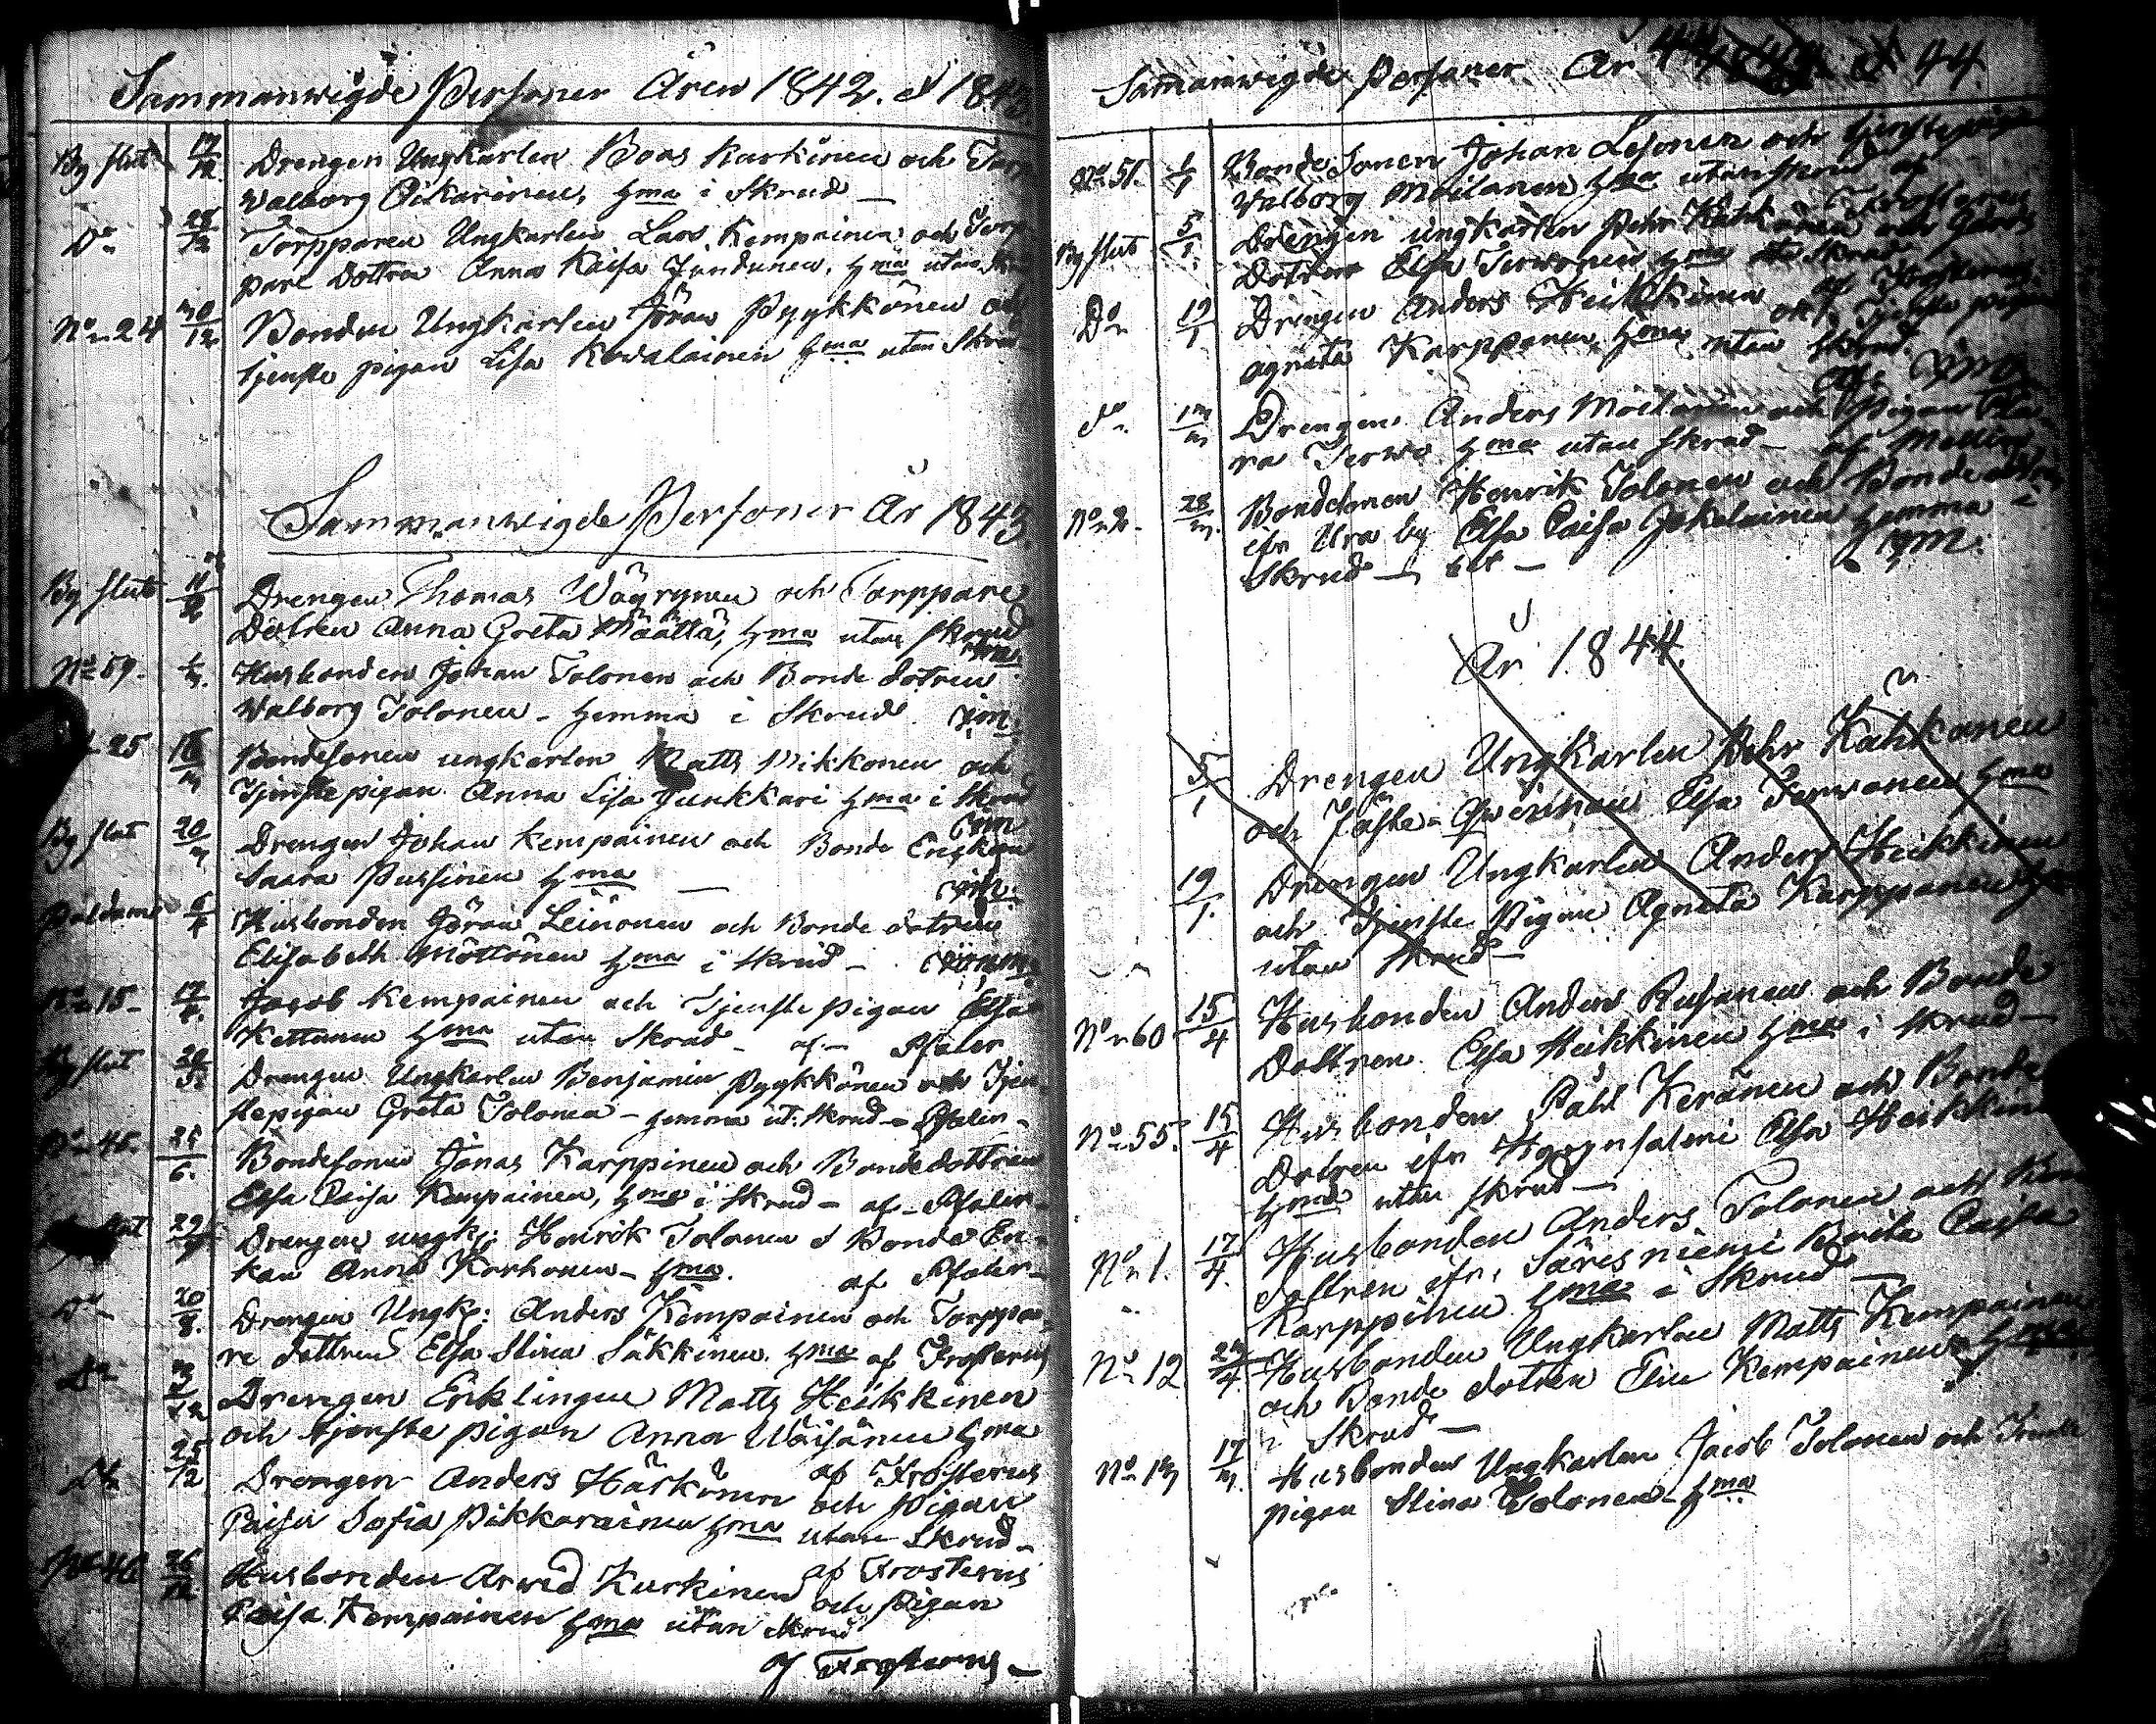 Sammanwigde Personer Åren 1842. & 1843.
By slut 17/12 Drengen Ungkarlen Boas Karkinen och Torp
Walborg Oikarinen, hma i Skrud
Do 28/12 Torpparen Ungkarlen Lars Kempainen och Torp
pare Dottren Anna Kaisa Jundunen, hma utan Skrud
No 24 30/12 Bonden Ungkarlen Jöran Pyykkönen och
tjenste pigan Lisa Kowalainen hma utan Skrud
Sammanwigde Personer År 1843.
By slut 11/2 Drengen Thomas Wäyrynen och Torppare
Dotren Anna Greta Määttä, hma utan skrud
No 59. Husbonden Johan Tolonen och Bonde dotren
Walborg Tolonen - hemma i Skrud
25 Bondesonen ungkarlen Matts Mikkonen och
Tjenstepigan Anna Lisa Junkkari hma i skrud
By slut 20 Drengen Johan Kempainen och Bonde Enckan
Saara Pussinen hma
Paldamo 6/4 Husbonden Jöran Leinonen och Bonde dotren
Elisabeth Möttönen hma i skrud -
No 15 - 17/4. Jacob Kempainen och Tjenste pigan Elsa
Kettunen hma utan Skrud - af - Pfaler
By slut Drengen Ungkarlen Benjamin Pyykkönen och Tjen
stepigan Greta Tolonen - hemma ut. skrud - Pfaler -
No 45. 6. Bondesonen Jonas Karppinen och Bondedottren
Elsa Caisa Kempainen, hma i Skrud - af - Pfaler -
29 Drengen ungk: Henrik Tolonen & Bonde En-
kan Anna Korhonen - hma. af Pfaler -
Do 20/8. Drengen Ungk: Anders Kempainen och Torppa
re dottren Elsa Stina Säkkinen. hma af Frosterus
Do 3/12 Drengen Enklingen Matts Heikkinen
och tjenste pigan Anna Wäisänen hma
af Frosterus
Do 25/12 Drengen Anders Härkönen och Pigan
Caisa Sofia Pikkarainen hma utan Skrud -
af Frosterus
No 46 26/12 Husbonden Arwed Kurkinen och Pigan
Caisa Kempainen hma utan skrud
af Frosterus -
Sammanwigde Personer År 44
No 51. 1/1 Bonde Sonen Johan Lesonen och tjenstepigan
Walborg Moilanen hma utan skrud af
Frosterus
By slut 5/1. Drengen ungkarlen Pehr Kähkönen och Gärds
Dottren Elsa Terwonen hma Skrud
af Frosterus
Do 19/1 Drengen Anders Heikkinen och Tjenste pigan
Agneta Karppanen, hma utan skrud.
do Drengen Anders Moilanen och Pigan Cla
ra Terwo hma utan skrud - af Mollin
No 2. 28 Bondesonen Henrik Tolonen och Bondedottren
ifr Ura by Elsa Caisa Jokelainen hemma i
Skrud -
År 1844.
5/1 Drengen Ungkarlen Pehr Kähkönen
och Elsa Terwonen hma
19/1. Drengen Ungkarlen Anders Heikkinen
och Tjenste Pigan Agneta Karppanen hma
utan Skrud -
No 60 15/4 Husbonden Anders Rusanen och Bonde
Dottren Elsa Heikkinen hma i skrud -
No 55. 15/4 Husbonden Påhl Keränen och Bonde
Dotren ifr Hyrynsalmi Elsa Heikkinen
hma utan skrud -
No 1. 17/4. Husbonden Anders Tolonen och Bonde
dottren ifr. Säresniemi Brita Caisa
Karppinen hma i Skrud -
No 12 Husbonden Ungkarlen Matts Kempainen
och Bonde dotren Elin Kempainen hma
i Skrud -
17 Husbonden Ungkarlen Jacob Tolonen och Tjenste
pigan Stina Tolonen - hma